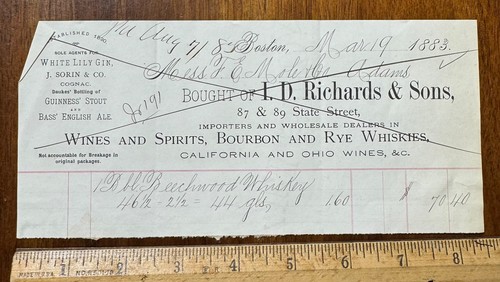 Pd Aug 7/8
Boston, Mar 19 1883.
Mess F. E. Adams
BOUGHT OF I. D. Richards & Sons,
87 & 89 State Street,
IMPORTERS AND WHOLESALE DEALERS IN
WINES AND SPIRITS, BOURBON AND RYE WHISKIES,
CALIFORNIA AND OHIO WINES, &C.
ESTABLISHED
SOLE AGENTS FOR
WHITE LILY GIN,
J. SORIN & CO.
COGNAC.
Bottling of
GUINNESS' STOUT
AND
BASS' ENGLISH ALE.
Not accountable for Breakage in
original packages.
191
1 Bbl Beechwood Whiskey
46½ - 2½ = 44 gls, 1.60 $ 70 40
1 2 3 4 5 6 7 8